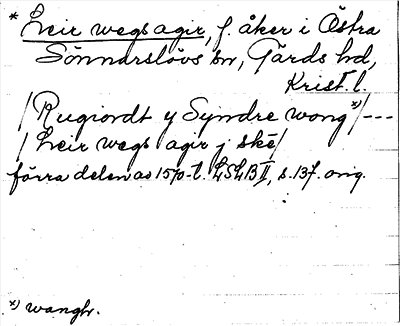 * Leir wegs agir, f. åker i Östra
Sönnarslövs sn, Gärds hd,
Krist. l.
/Rugiordt y Syndre wong x)/---
/Leir wegs agir j skê/
förra delen av 1570-t. LSLB II, s. 137. orig.
x) wanghr.